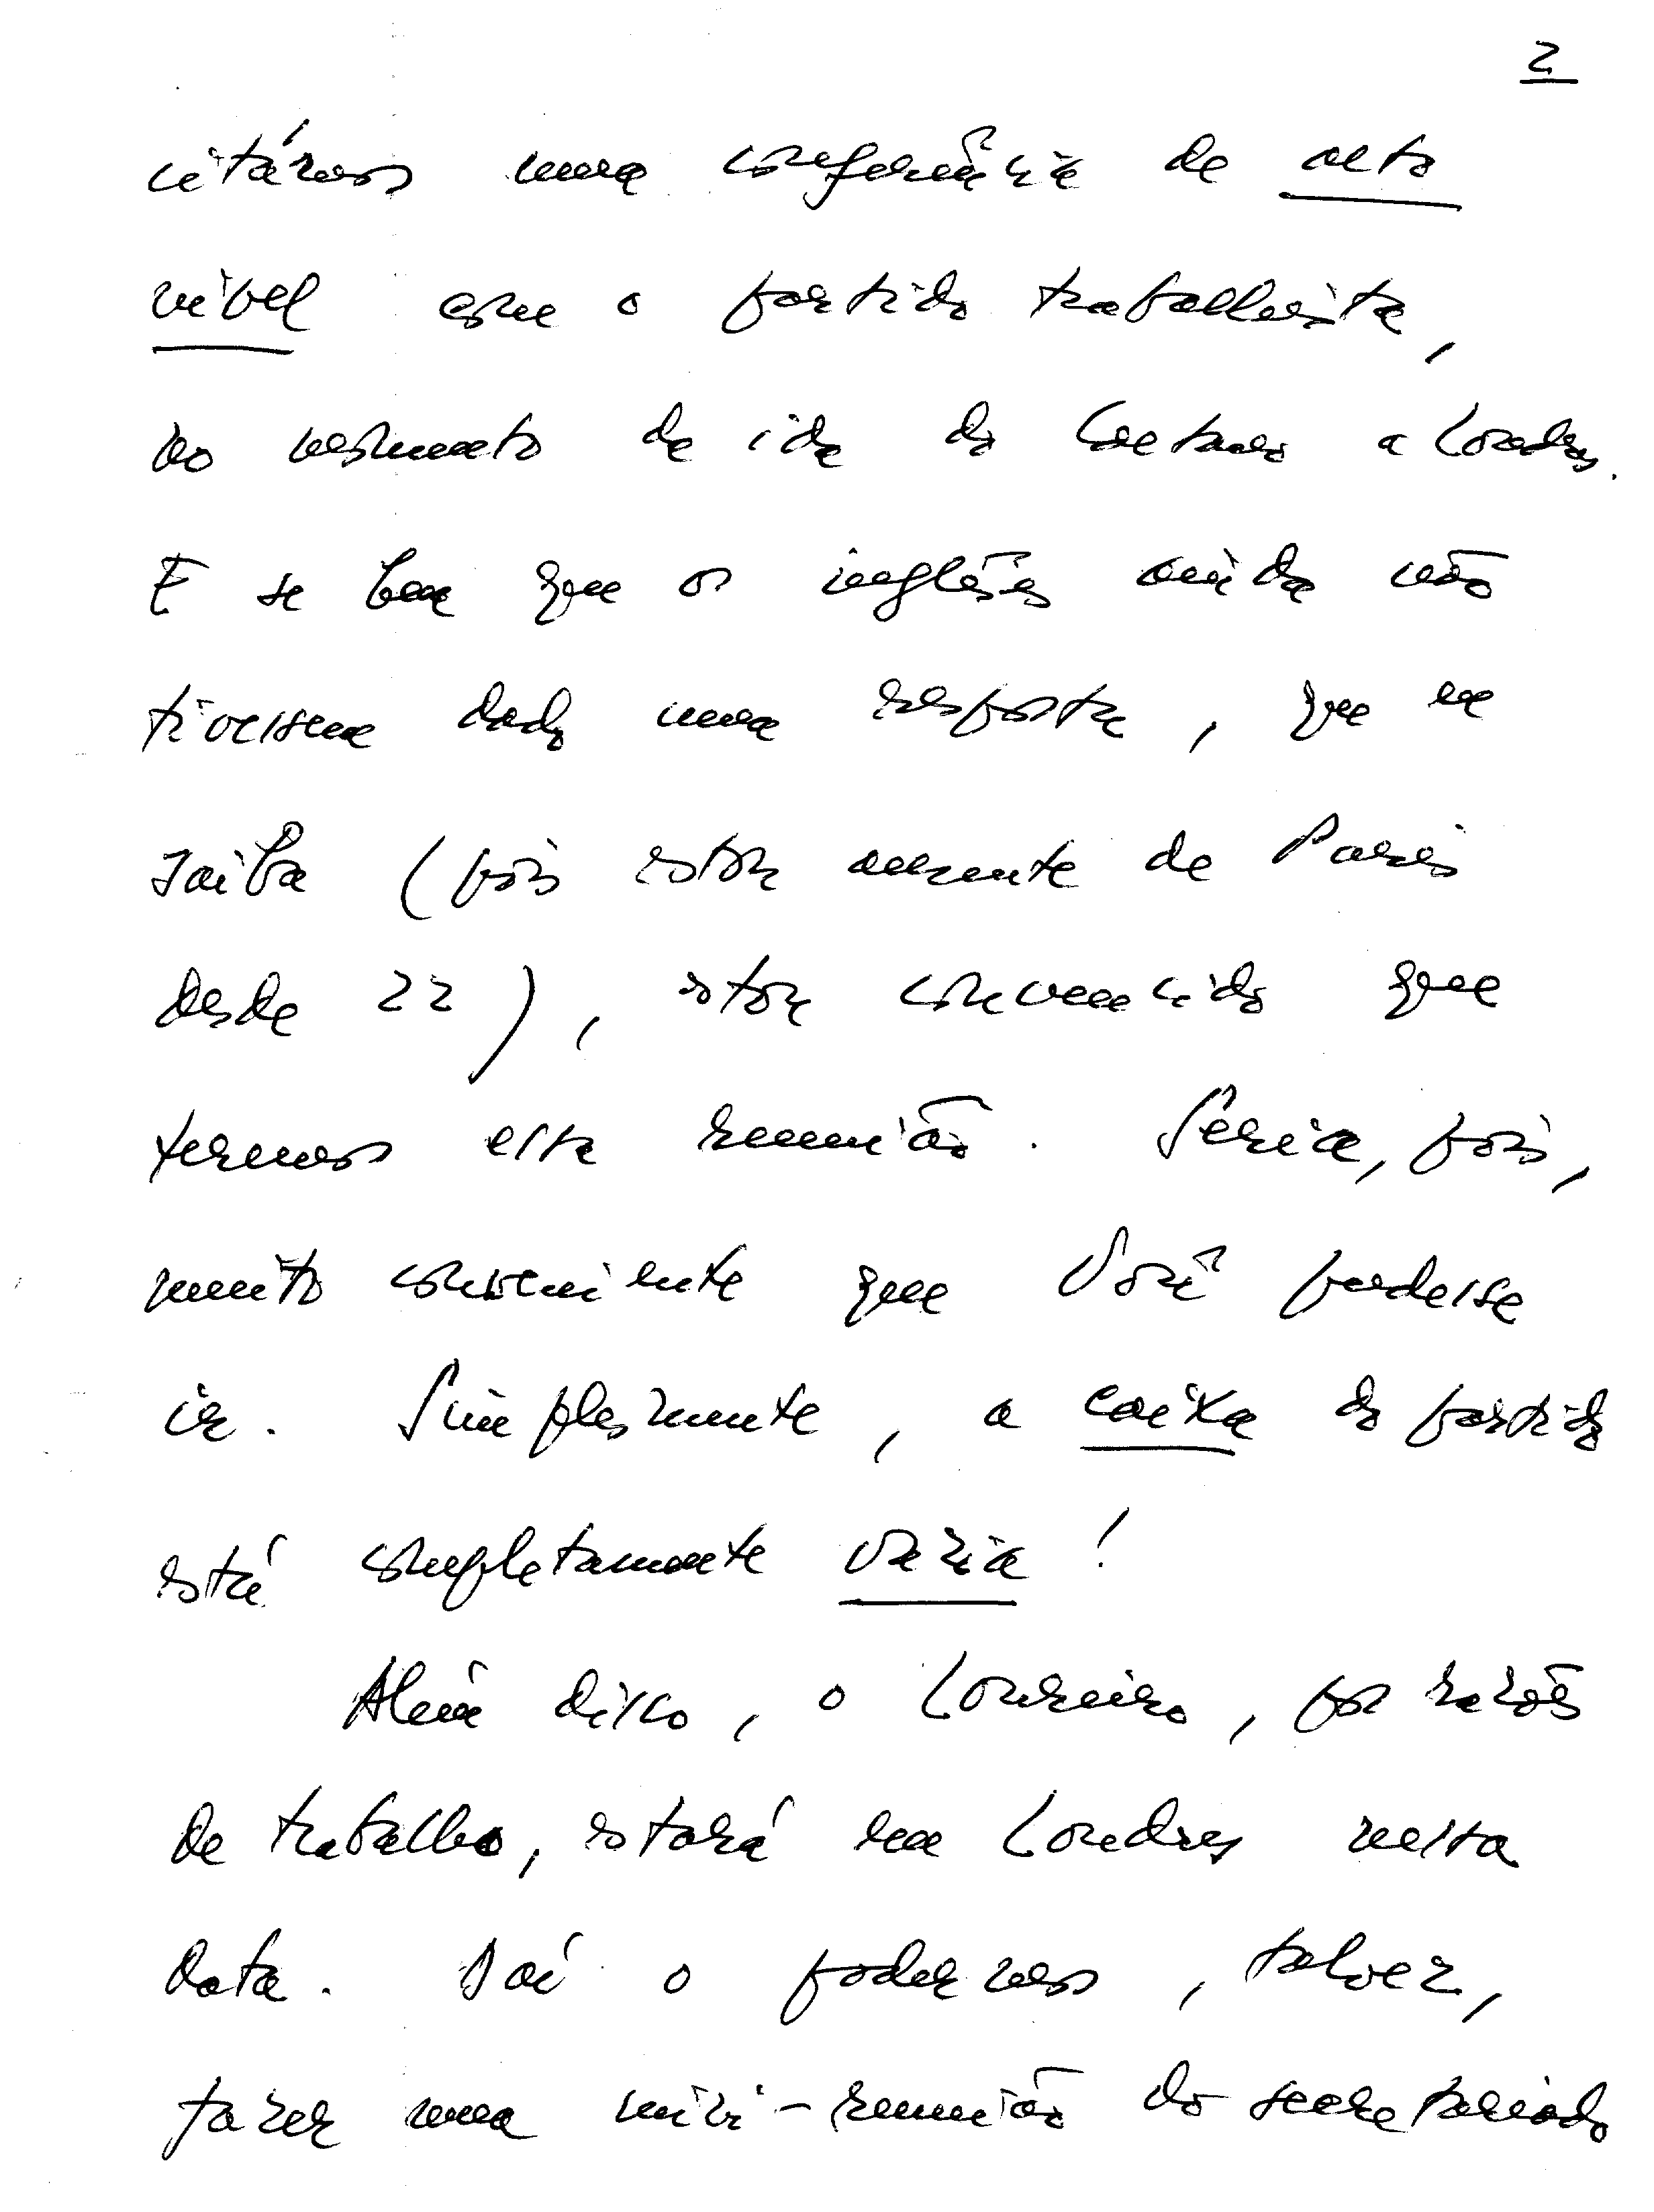 2
citámos uma conferência de alto
nível com o partido trabalhista,
no momento da ida do Caetano a Londres.
E se bem que os inglêses ainda não
tivessem dado uma resposta, que eu
saiba (pois estou ausente de Paris
desde 22), estou convencido que
teremos essa reunião. Seria, pois,
muito conveniente que Você pudesse
ir. Simplesmente, a caixa do partido
está completamente vazia!
Além disso, o Loureiro, por razões
de trabalho, estará em Londres nessa
data. Daí o podermos, talvez,
fazer uma mini-reunião do secretariado